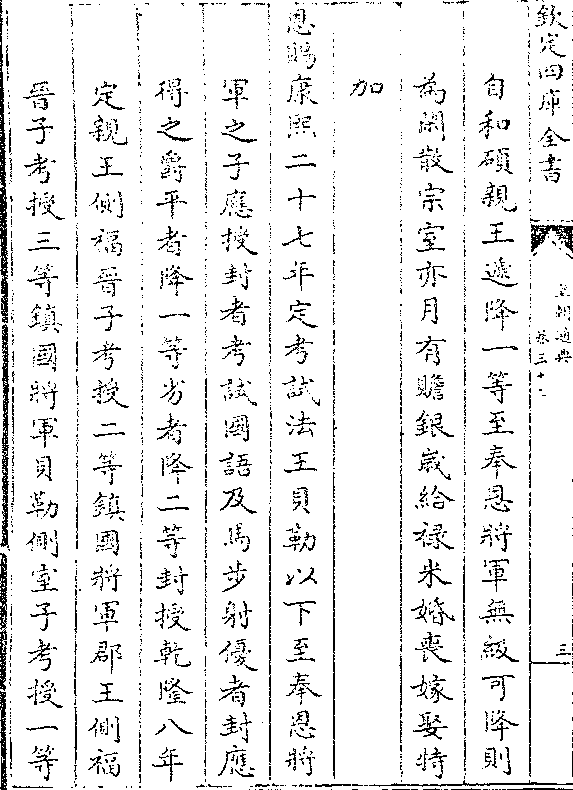 欽定四庫全書
皇朝通典
卷三十二
三
自和碩親王遞降一等至奉恩將軍無級可降則
為閑散宗室亦月有贍銀歲給祿米婚喪嫁娶特
加
恩賜康熙二十七年定考試法王貝勒以下至奉恩將
軍之子應授封者考試國語及馬步射優者封應
得之爵平者降一等劣者降二等封授乾隆八年
定親王側福晉子考授二等鎮國將軍郡王側福
晉子考授三等鎮國將軍貝勒側室子考授一等